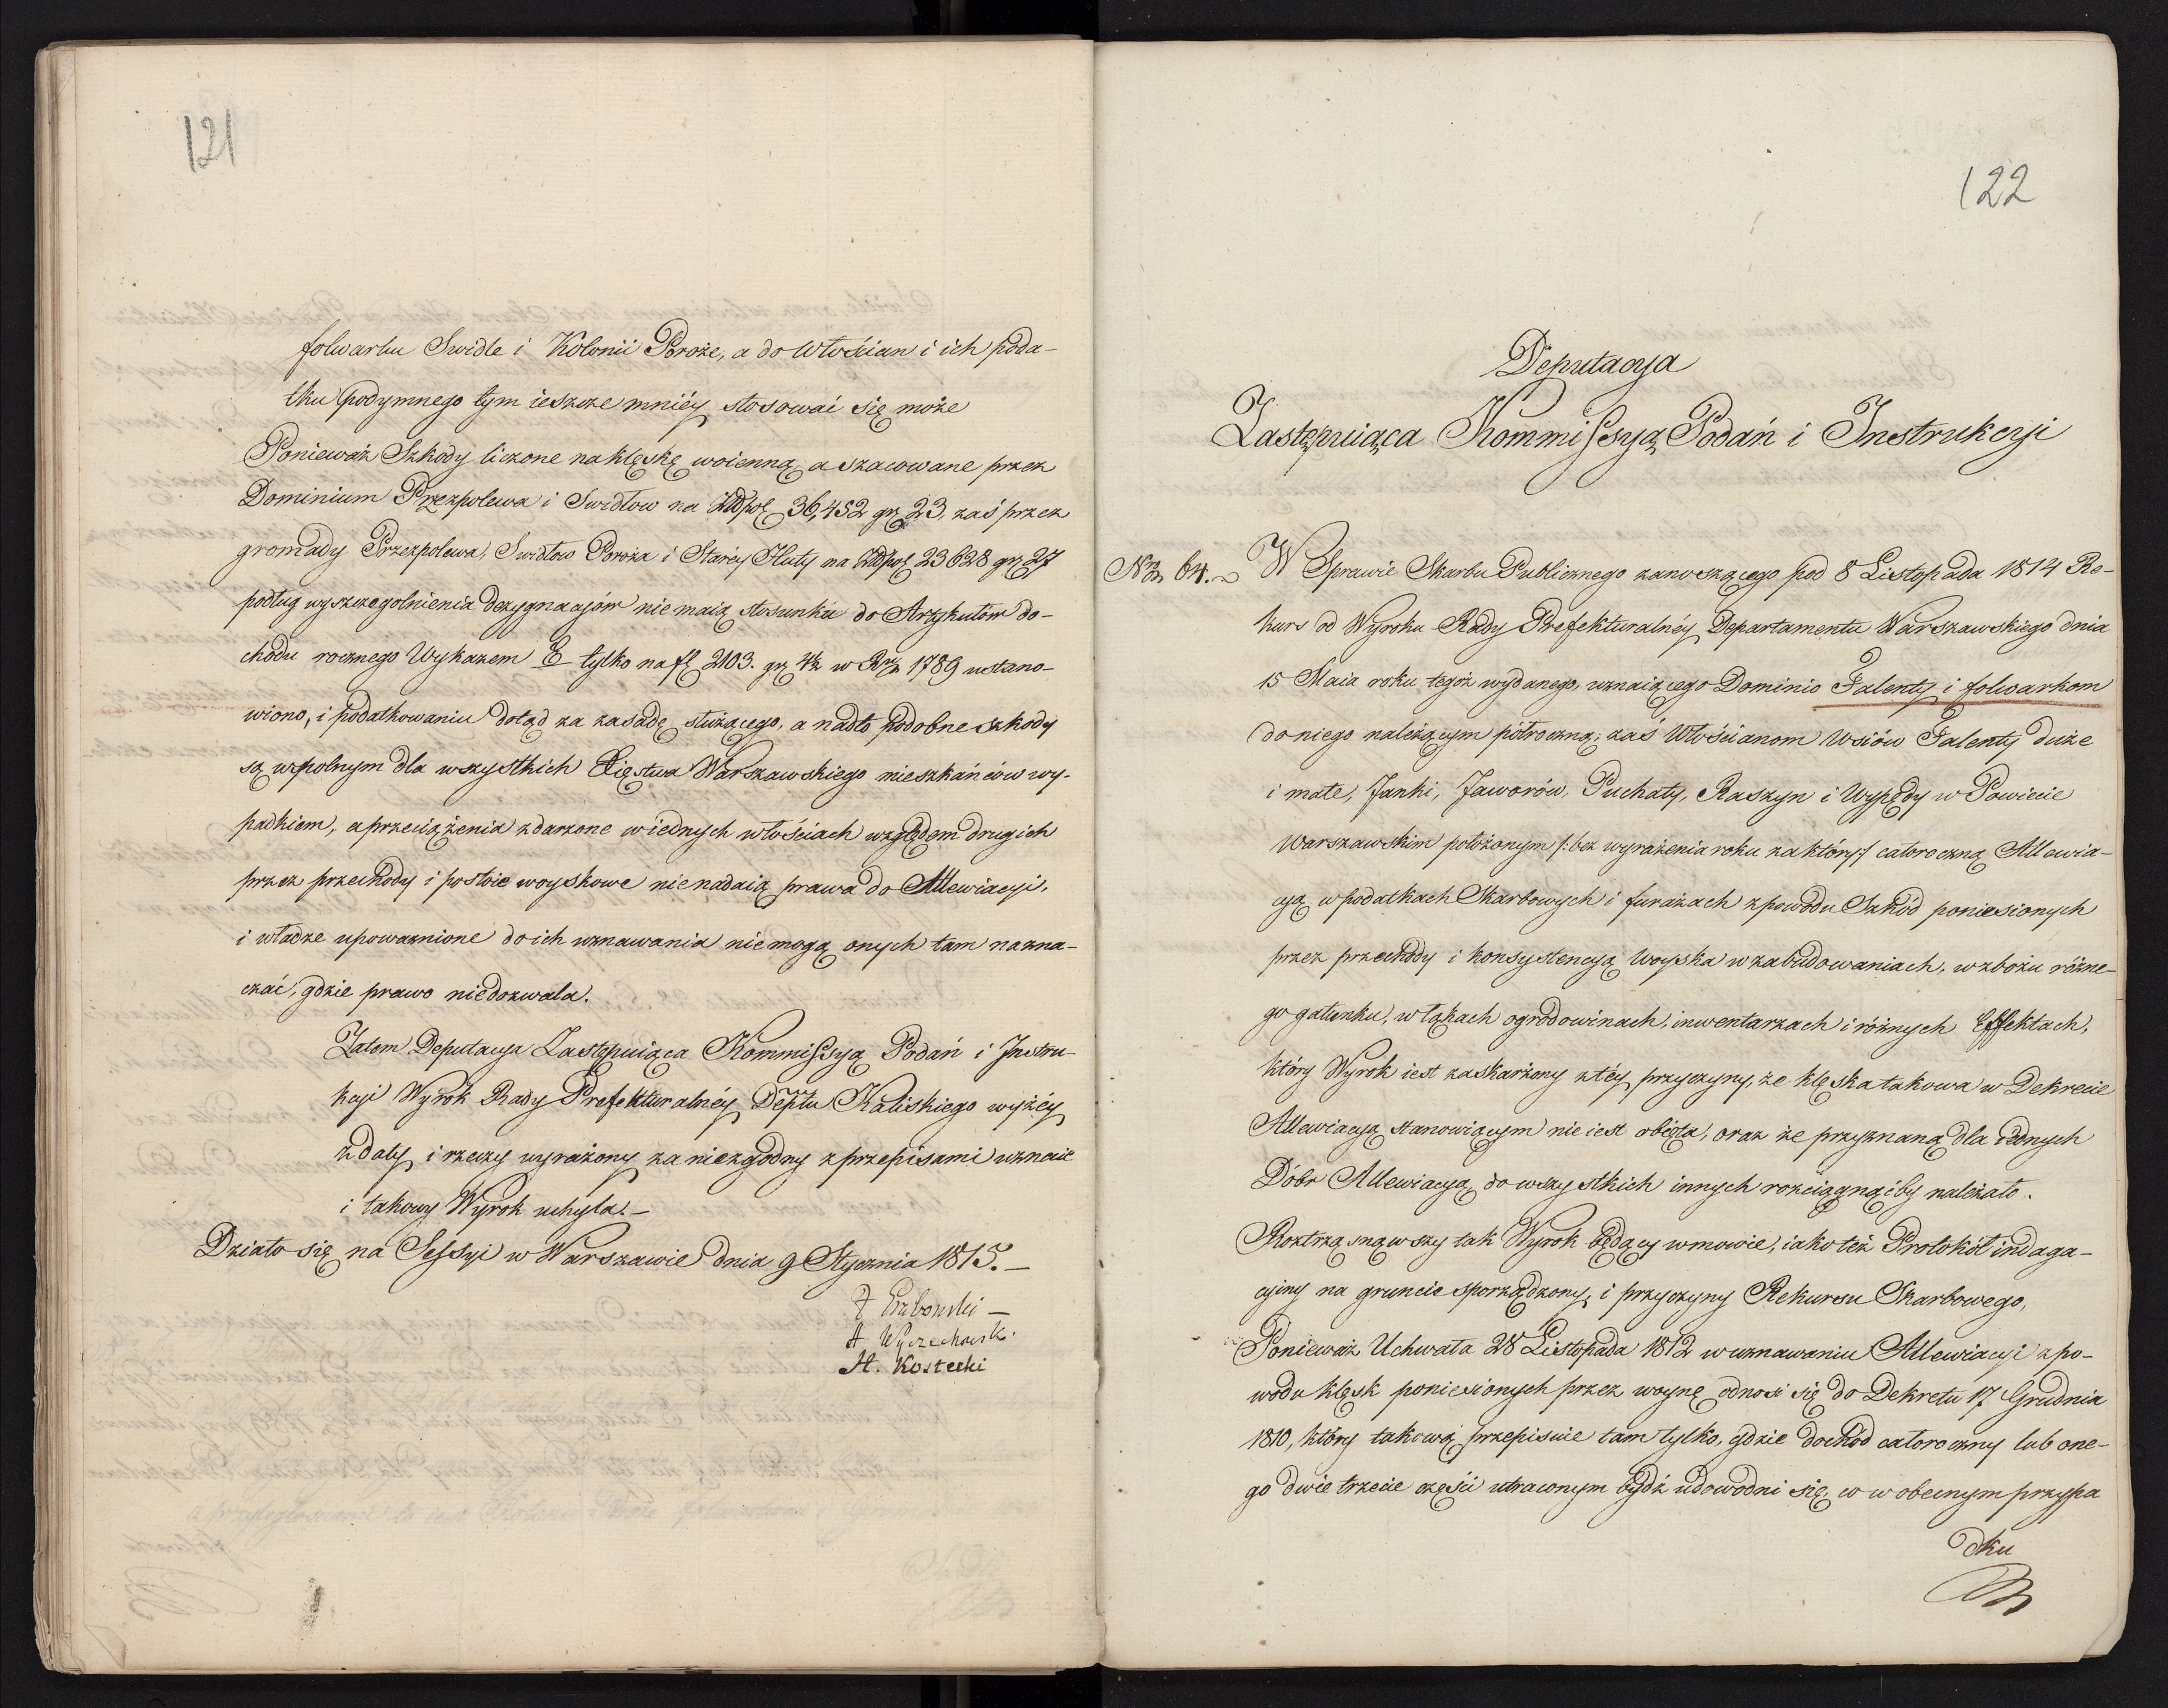 121
folwarku Swidle i Kolonii Poroże, a do Włościan i ich poda-
tku podymnego tym ieszcze mniéy stosować się może
Ponieważ Szkody liczone na klęskę woienną, a szacowane przez
Dominium Przezpolewa i Swidlow na złłpol 36,452 gr 23, zaś przez
gromady Przezpolewa, Swidlow Poroża i Staréy Huty na złłpol 23628 gr 27
podług wyszczegolnienia dezygnacyów nie maią stosunku do Artykułów do-
chodu rocznego Wykazem E tylko na fl 2103. gr 4½ w Rku 1789 ustano-
wiono, i podatkowaniu dotąd za zasadę służącego, a nadto podobne szkody
są wspolnym dla wszystkich Xięstwa Warszawskiego mieszkańców wy-
padkiem, a przeciążenia zdarzone w iednych włościach względem drugich
przez przechody i postoie woyskowe nie nadaią prawa do Allewiacyi,
i władze upoważnione do ich uznawania nie mogą onych tam nazna-
czać, gdzie prawo niedozwala.
Zatem Deputacya Zastępuiąca Kommissyą Podań i Instru-
kcyi Wyrok Rady Prefekturalnéy Deptu Kaliskiego wyżéy
z daty i rzeczy wyrażony za niezgodny z przepisami uznaie
i takowy Wyrok uchyla.—
Działo się na Sessyi w Warszawie dnia 9 Stycznia 1815.—
A. Wyczechowsk.
A. Kostecki
122
Deputacya
Zastępuiąca Kommissyą Podań i Instrukcyi
Nro 64.
W Sprawie Skarbu Publicznego zanoszącego pod 8 Listopada 1814 Re-
kurs od Wyroku Rady Prefekturalnéy Departamentu Warszawskiego dnia
15 Maia roku tegoż wydanego, uznaiącego Dominio Falenty i folwarkom
do niego należącym półroczną, zaś Włościanom Wsiów Falenty duże
i małe, Janki, Jaworów, Puchały, Raszyn i Wypędy w Powiecie
Warszawskim położonym /: bez wyrażenia roku za który :/ całoroczną Allewia-
cyą w podatkach Skarbowych i furażach z powodu Szkód poniesionych
przez przechody i konsystencyą Woyska w zabudowaniach, w zbożu różne-
go gatunku, w łąkach ogrodowinach, inwentarzach i różnych Effektach,
który Wyrok iest zaskarżony z téy przyczyny, że klęska takowa w Dekrecie
Allewiacyą stanowiącym nie iest obięta, oraz że przyznaną dla iednych
Dóbr Allewiacyą do wszystkich innych rozciągnąćby należało.
Roztrząsnąwszy tak Wyrok będący w mowie, iako też Protokół indaga-
cyiny na gruncie sporządzony, i przyczyny Rekursu Skarbowego,
Ponieważ Uchwała 28 Listopada 1812 w uznawaniu Allewiacyi z po-
wodu klęsk poniesionych przez woynę odnosi się do Dekretu 17 Grudnia
1810, który takową przepisuie tam tylko, gdzie dochód całoroczny lub one-
go dwie trzecie części utraconym bydź udowodni się, co w obecnym przypa
dku